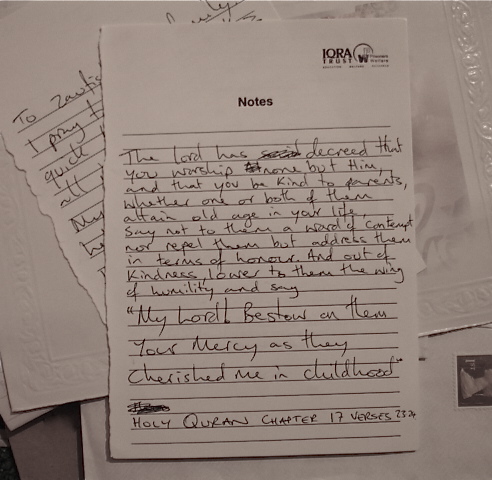 To
I pray
quick
all
My
IQRA
TRUST
Prisoners
Welfare
Notes
The Lord has said decreed that
you worship none but Him,
and that you be kind to parents,
whether one or both of them
attain old age in your life,
Say not to them a word of contempt
nor repel them but address them
in terms of honour. And out of
kindness, lower to them the wing
of humility and say
"My Lord! Bestow on them
Your Mercy as they
cherished me in childhood"
HOLY QURAN CHAPTER 17 VERSES 23 24